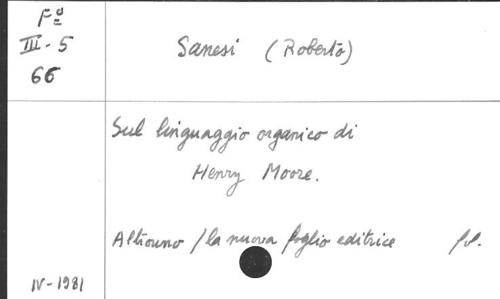 Fº
III-5
66
Sanesi (Roberto)
Sul linguaggio organico di
Henry Moore.
Altrouno / la nuova foglio editrice
IV-1981